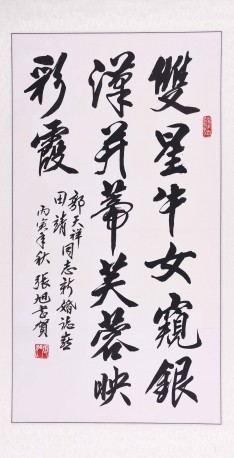 雙星牛女窺銀
漢并蒂芙蓉映
彩霞
郭天祥
田靖同志新婚誌喜
丙寅年秋張旭光賀